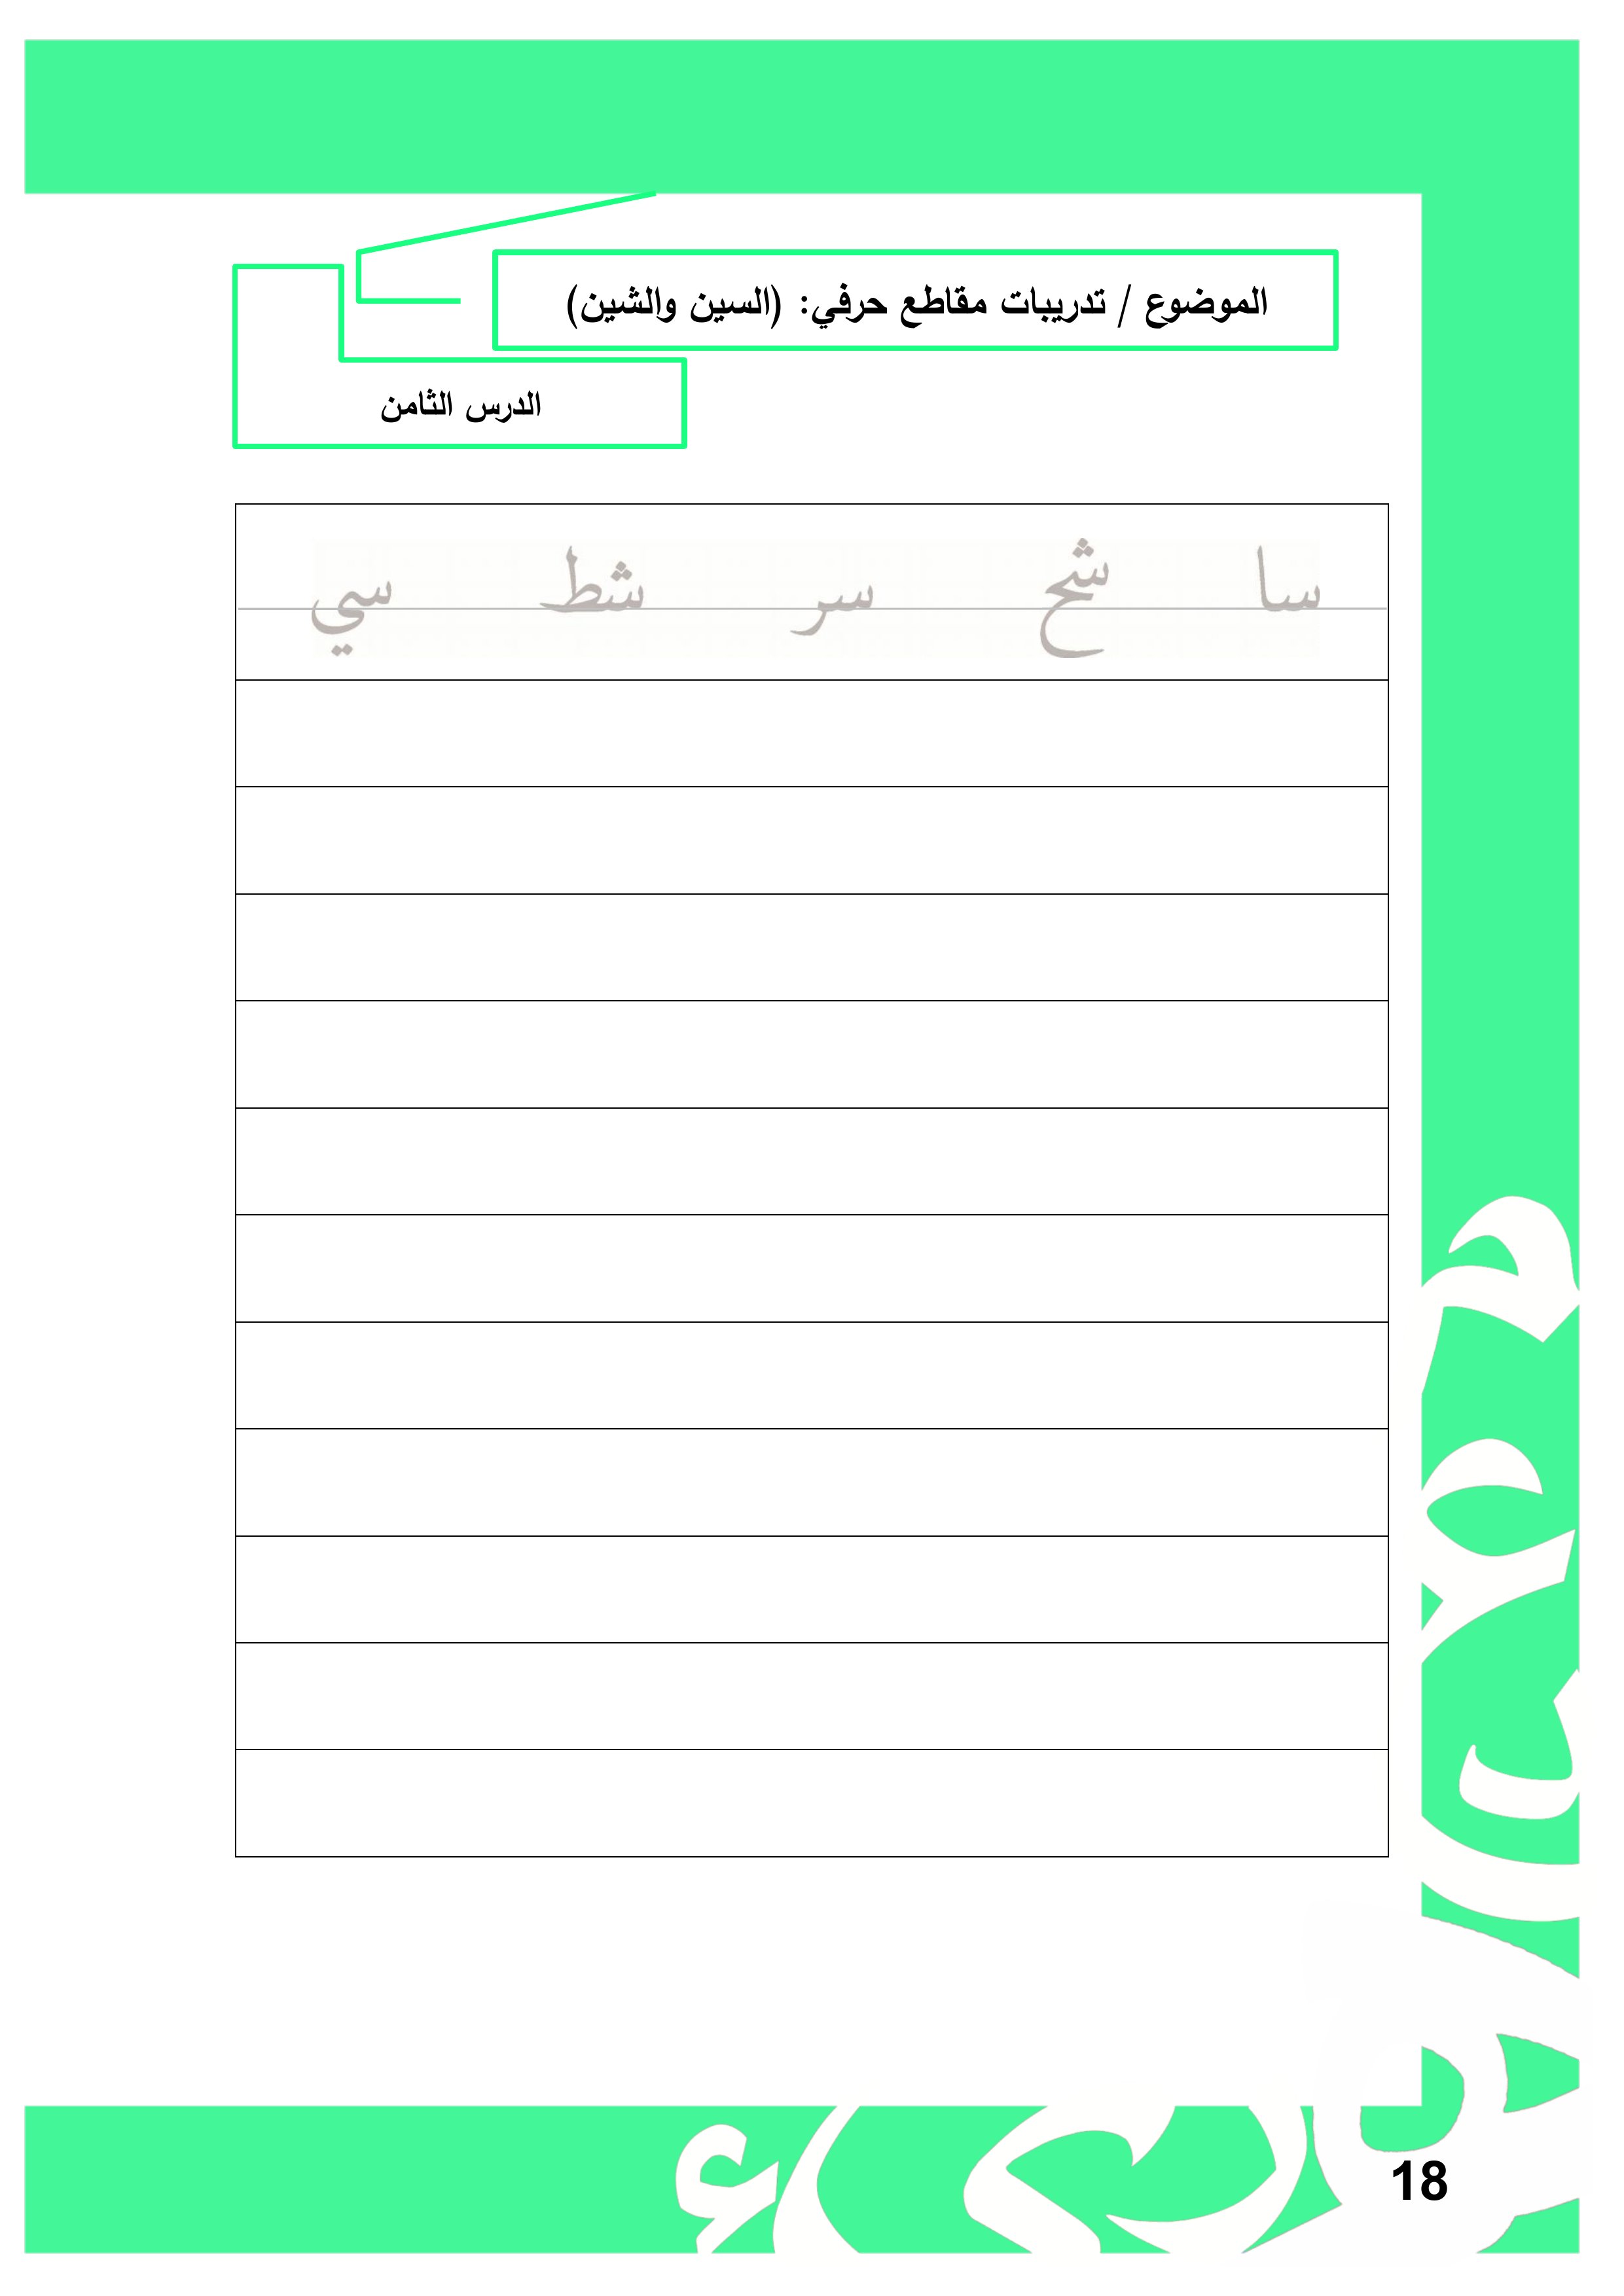 الموضوع / تدريبات مقاطع حرفي: (السين والشين)
الدرس الثامن
سا شح سر شط سي
18